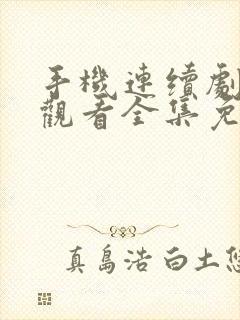 手機連續劇
觀看全集免
真島浩白土悠